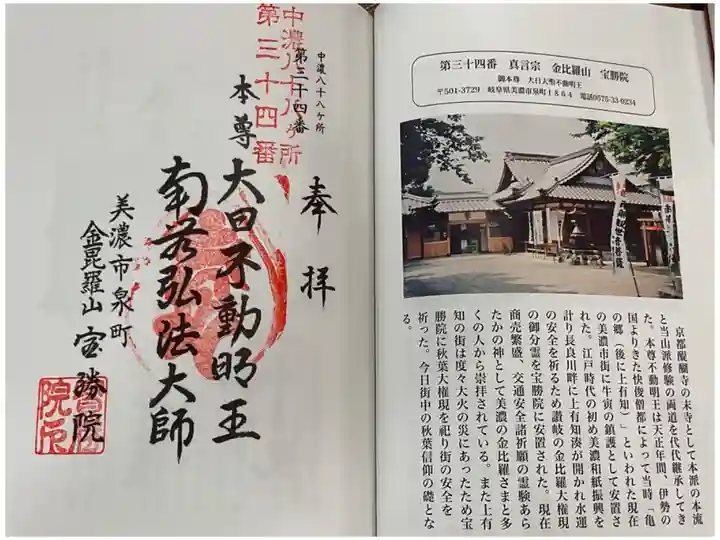 奉拝
中濃八十八ヶ所
第三十四番
中濃八十八ヶ所
第三十四番
本尊
大日不動明王
南無弘法大師
美濃市泉町
金毘羅山 宝勝院
第三十四番 真言宗 金比羅山 宝勝院
御本尊 大日大聖不動明王
〒501-3729 岐阜県美濃市泉町1864 電話0575-33-0234
京都醍醐寺の末寺として本派の本流
と当山派修験の両道を代々継承してき
た。本尊不動明王は天正年間、伊勢の
国よりきた快俊僧都によって当時「亀
の郷(後に上有知)」といわれた現在
の美濃市街に牛寅の鎮護として安置さ
れた。江戸時代の初め美濃和紙振興を
計り長良川畔に上有知湊が開かれ水運
の安全を祈るため讃岐の金比羅大権現
の御分霊を宝勝院に安置された。現在
商売繁盛、交通安全諸祈願の霊験あら
たかの神として美濃の金比羅さまと多
くの人から崇拝されている。また上有
知の街は度々大火の災にあったため宝
勝院に秋葉大権現を祀り街の安全を
祈った。今日街中の秋葉信仰の礎とな
る。